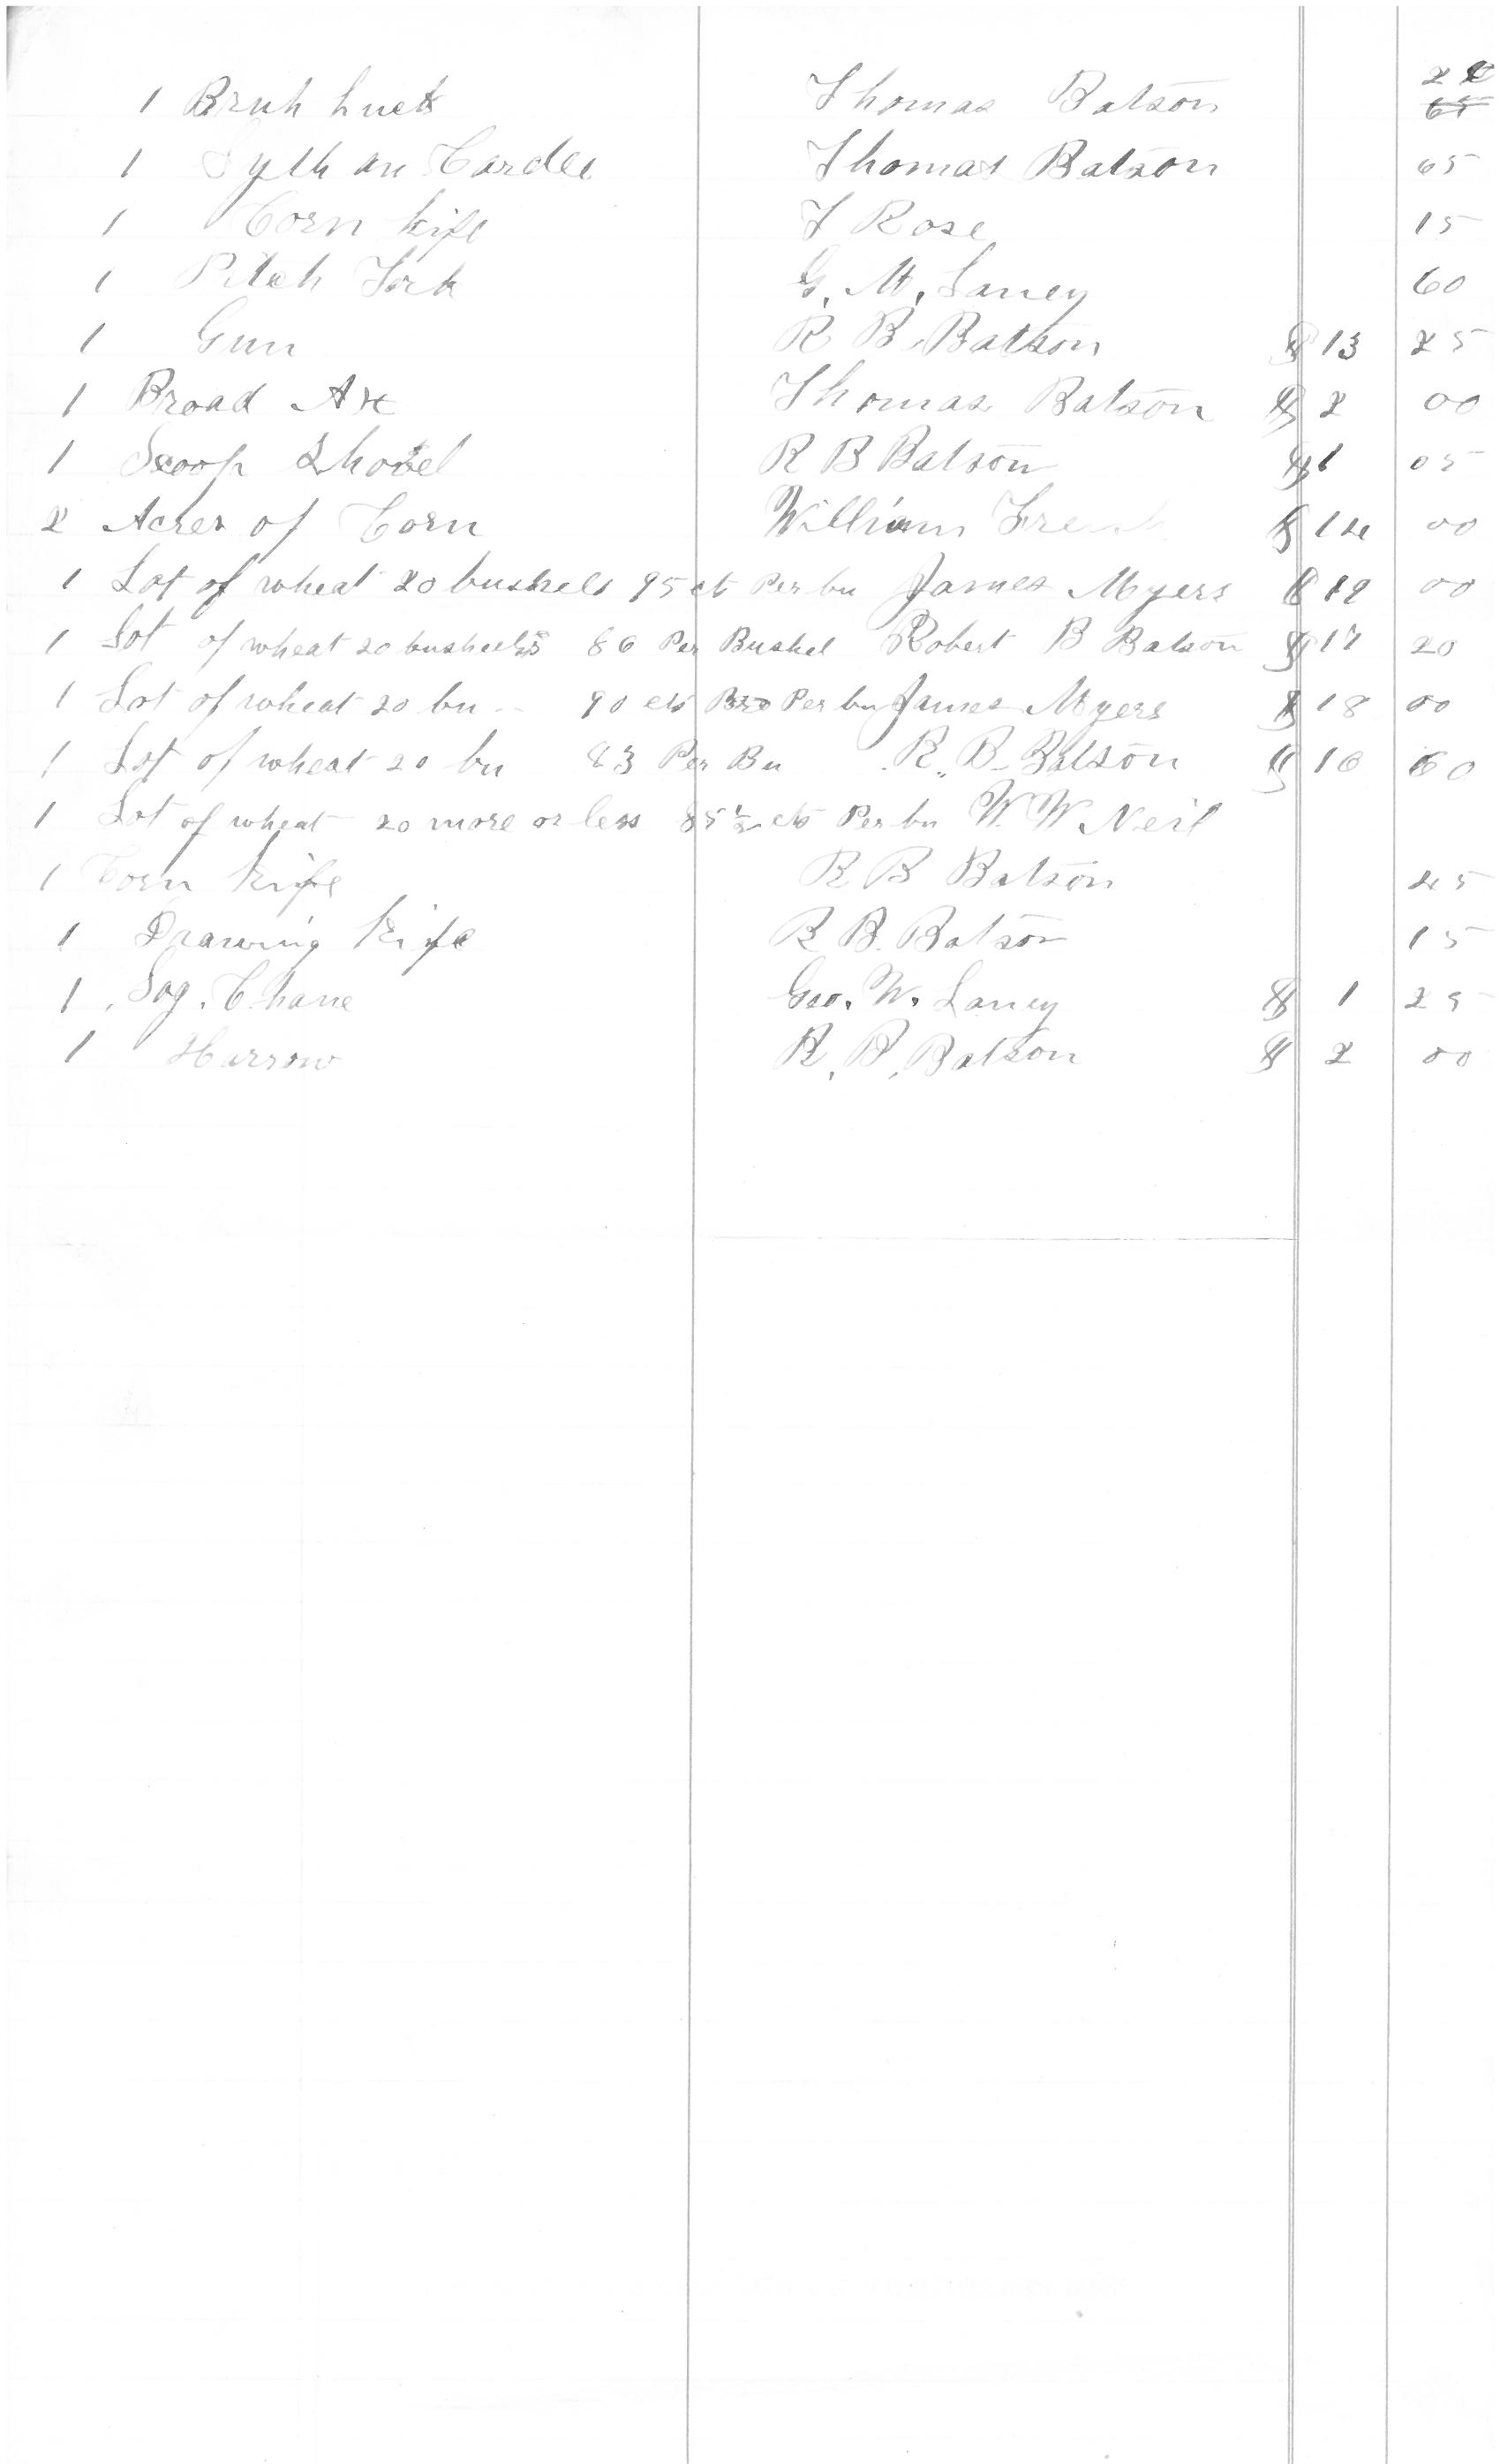 1 Bruh Thomas Batson 2
1 Syth an Cardle Thomas Batson 65
1 Corn kife Rose 15
1 Pitch Fork G. W. Laney 60
1 Gun R B Batson $ 13 25
1 Broad Axe Thomas Batson $ 2 00
1 Scoop Shovel R B Batson $ 1 05
2 Acres of Corn William $ 14 00
1 Lot of wheat 20 bushels 95 ct Per bu James Myers $ 19 00
1 Lot of wheat 20 bushells 86 Per Bushel Robert B Batson $ 17 20
1 Lot of wheat 20 bu 90 cts Per bu James Myers $ 18 00
1 Lot of wheat 20 bu 83 Per Bu R. B. Batson $ 16 60
1 Lot of wheat 20 more or less 85 1/2 cts Per bu W. W. Neil
1 Corn kife R B Batson 45
1 Drawing kife R. B. Batson 15
1 Log Chane Geo. W. Laney $ 1 25
1 Harrow R. B. Batson $ 2 00